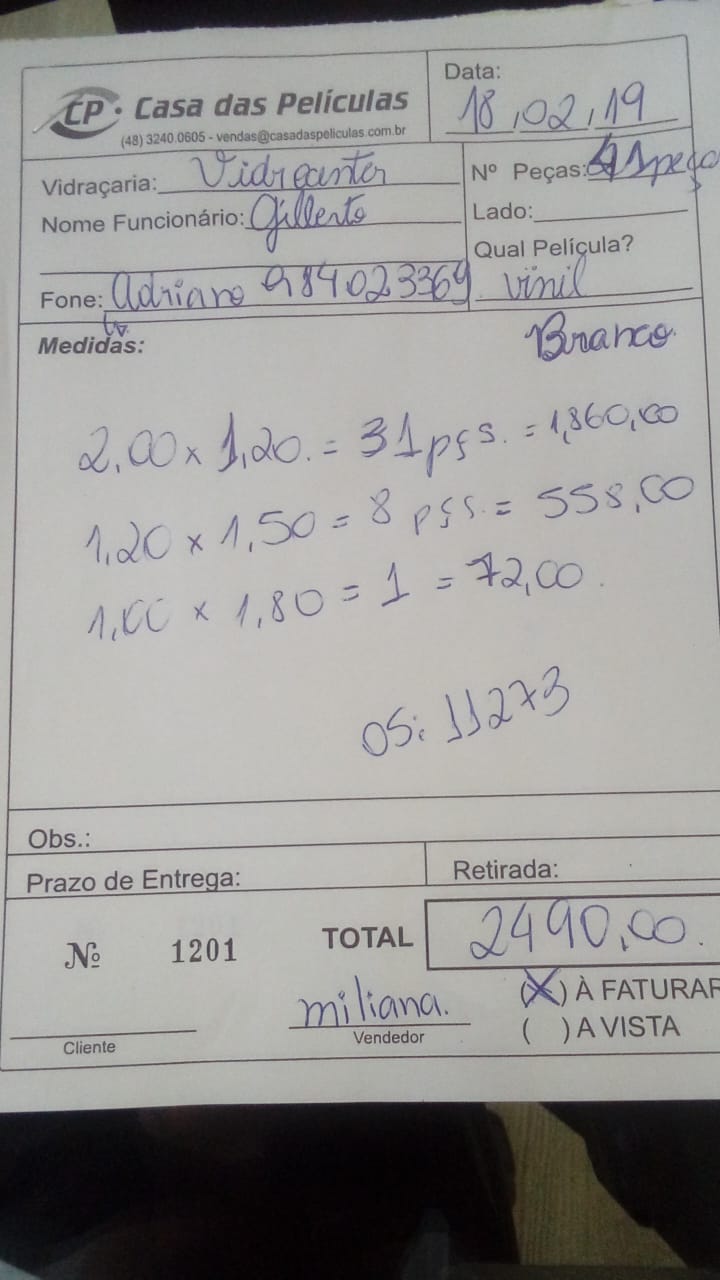 CP · Casa das Películas
(48) 3240.0605 - vendas@casadaspeliculas.com.br
Data:
18,02,19
Vidraçaria: Vidreanter
Nº Peças: 41 peça
Nome Funcionário: Gilberto
Lado:
Qual Película?
Fone: Adriano 984023369
vinil
Branco.
Medidas:
2,00 x 1,20. = 31 pçs. = 1,860,00
1,20 x 1,50 = 8 pçs. = 558,00
1,00 x 1,80 = 1 = 72,00.
OS: 11273
Obs.:
Prazo de Entrega:
Retirada:
Nº 1201
TOTAL 2490,00.
miliana.
(X) À FATURAR
Cliente
Vendedor
( ) A VISTA